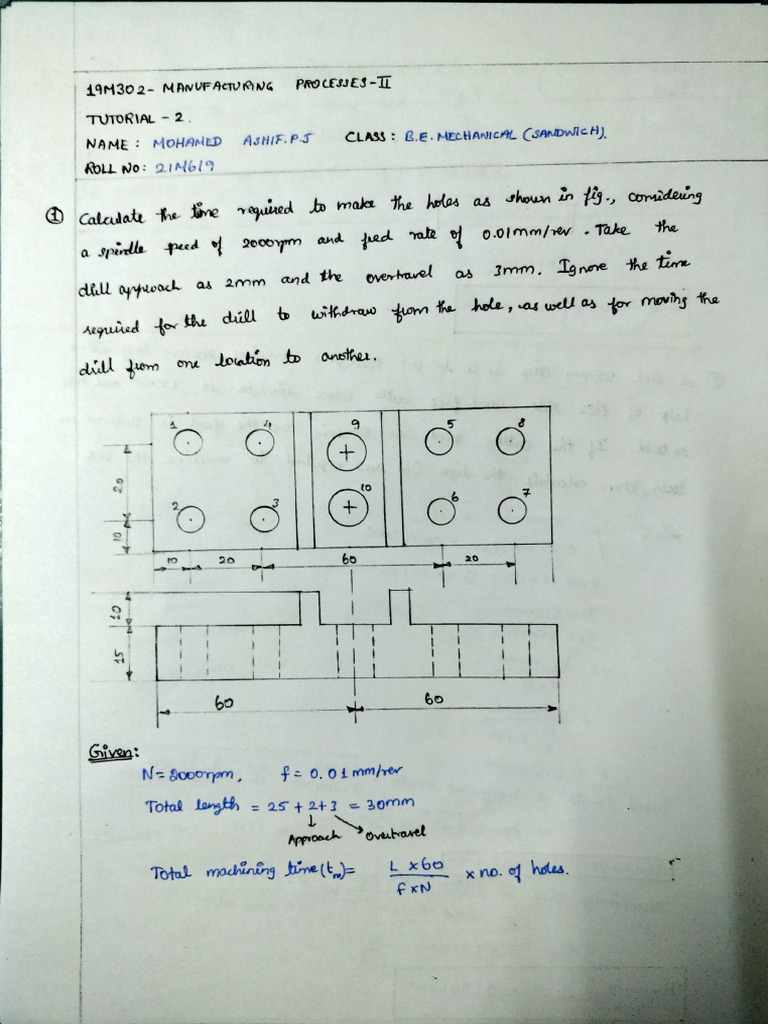 19M302- MANUFACTURING PROCESSES-II
TUTORIAL - 2.
NAME : MOHAMED ASHIF.P.J CLASS : B.E. MECHANICAL (SANDWICH).
ROLL NO : 21M619
① Calculate the time required to make the holes as shown in fig., considering
a spindle speed of 2000rpm and feed rate of 0.01mm/rev. Take the
drill approach as 2mm and the overtravel as 3mm. Ignore the time
required for the drill to withdraw from the hole, as well as for moving the
drill from one location to another.
1 4 9 5 8
20
2 3 10 6 7
10
10 20 60 20
10
15
60 60
Given:
N = 2000rpm, f = 0.01 mm/rev
Total length = 25 + 2 + 3 = 30mm
Approach Overtravel
Total machining time (tm) = L × 60 / f × N × no. of holes.